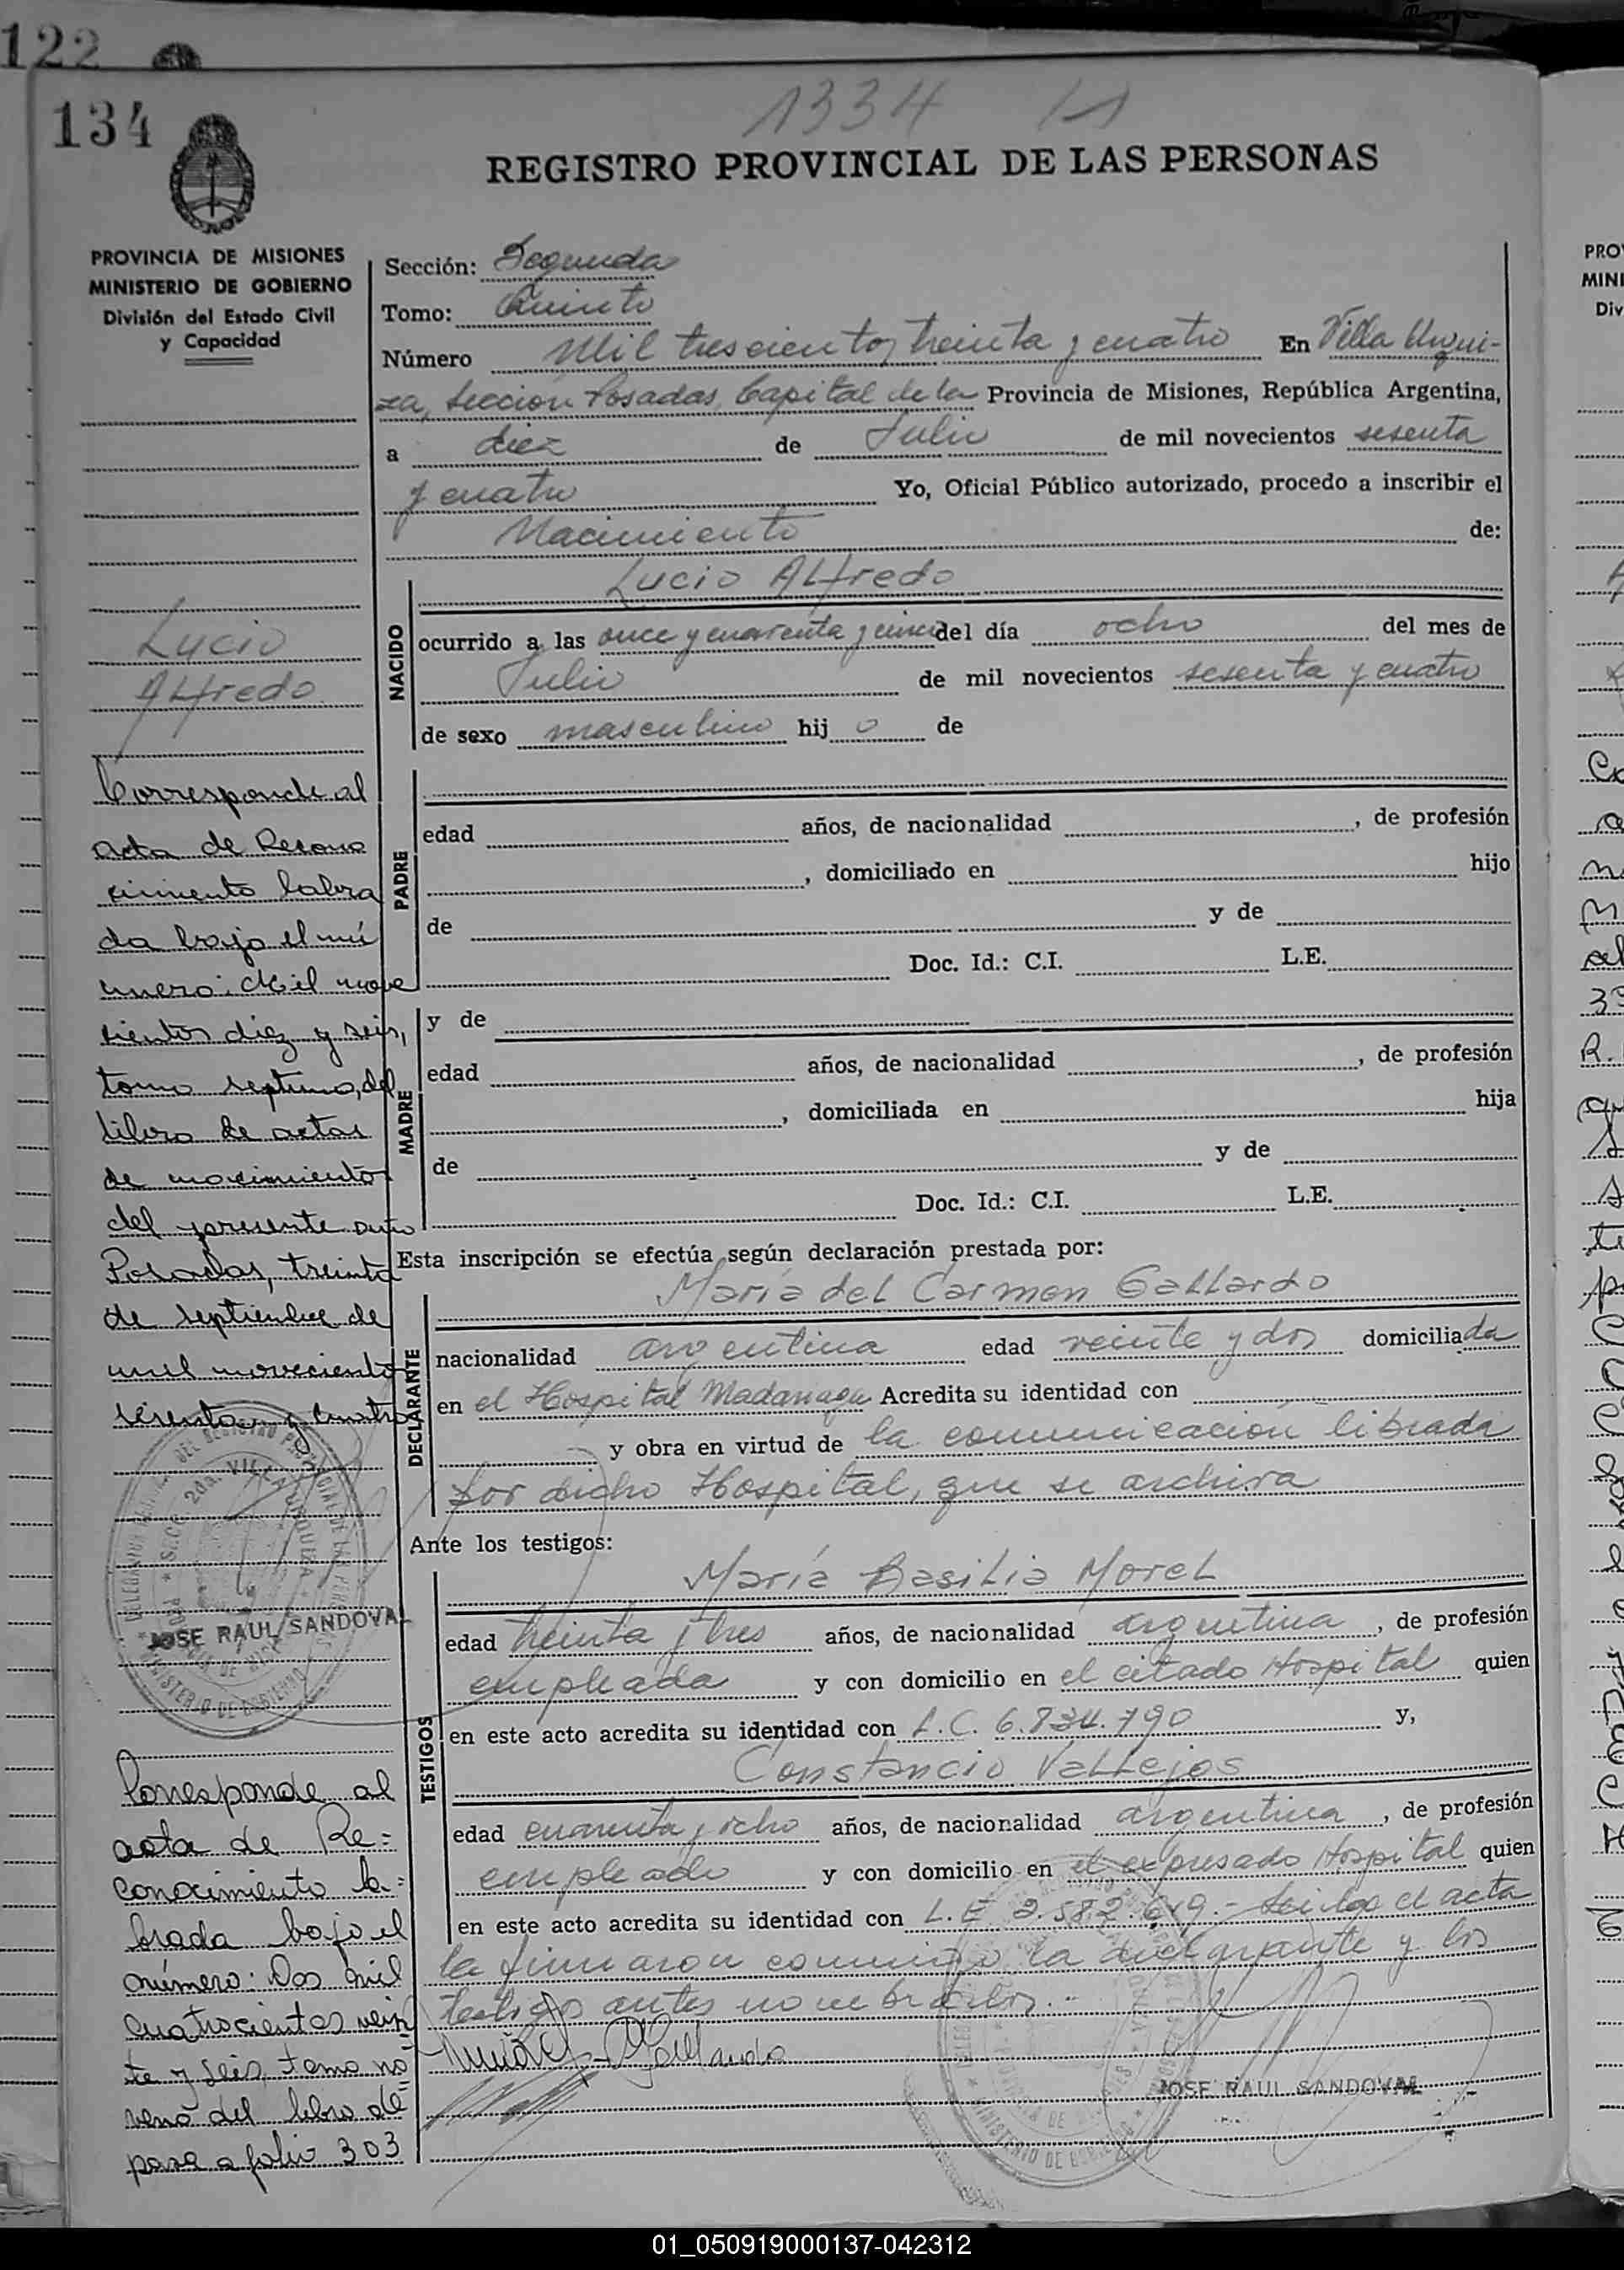 122
134
1334
REGISTRO PROVINCIAL DE LAS PERSONAS
PROVINCIA DE MISIONES
MINISTERIO DE GOBIERNO
División del Estado Civil
y Capacidad
Sección: Segunda
Tomo: Quinto
Número Mil trescientos treinta y cuatro En Villa Urqui-
za, Sección Posadas, Capital de la Provincia de Misiones, República Argentina,
a diez de Julio de mil novecientos sesenta
y cuatro Yo, Oficial Público autorizado, procedo a inscribir el
Nacimiento de:
Lucio Alfredo
NACIDO
ocurrido a las once y cuarenta y cinco del día ocho del mes de
Julio de mil novecientos sesenta y cuatro
de sexo masculino hij o de
PADRE
edad años, de nacionalidad , de profesión
, domiciliado en hijo
de y de
Doc. Id.: C.I. L.E.
MADRE
y de
edad años, de nacionalidad , de profesión
, domiciliada en hija
de y de
Doc. Id.: C.I. L.E.
Esta inscripción se efectúa según declaración prestada por:
DECLARANTE
María del Carmen Gallardo
nacionalidad argentina edad veinte y dos domiciliada
en el Hospital Madariaga Acredita su identidad con
y obra en virtud de la comunicación librada
por dicho Hospital, que se archiva
Ante los testigos:
TESTIGOS
María Basilia Morel
edad treinta y tres años, de nacionalidad argentina, de profesión
empleada y con domicilio en el citado Hospital quien
en este acto acredita su identidad con L.C. 6.834.790 y,
Constancio Vallejos
edad cuarenta y ocho años, de nacionalidad argentina, de profesión
empleado y con domicilio en el expresado Hospital quien
en este acto acredita su identidad con L.E 2.582.619.- Leida el acta
la firmaron conmigo la declarante y los
testigos antes nombrados.-
Gallardo
JOSE RAUL SANDOVAL
Lucio
Alfredo
Corresponde al
acta de Recono
cimiento labra
da bajo el nú
mero: Mil nove
cientos diez y seis,
tomo septimo, del
libro de actas
de nacimientos
del presente año
Posadas, treinta
de septiembre de
mil novecientos
sesenta y cuatro
JOSE RAUL SANDOVAL
Corresponde al
acta de Re=
conocimiento la=
brada bajo el
número: Dos mil
cuatrocientos vein
te y seis, tomo no
veno del libro de
pasa a folio 303
01_050919000137-042312